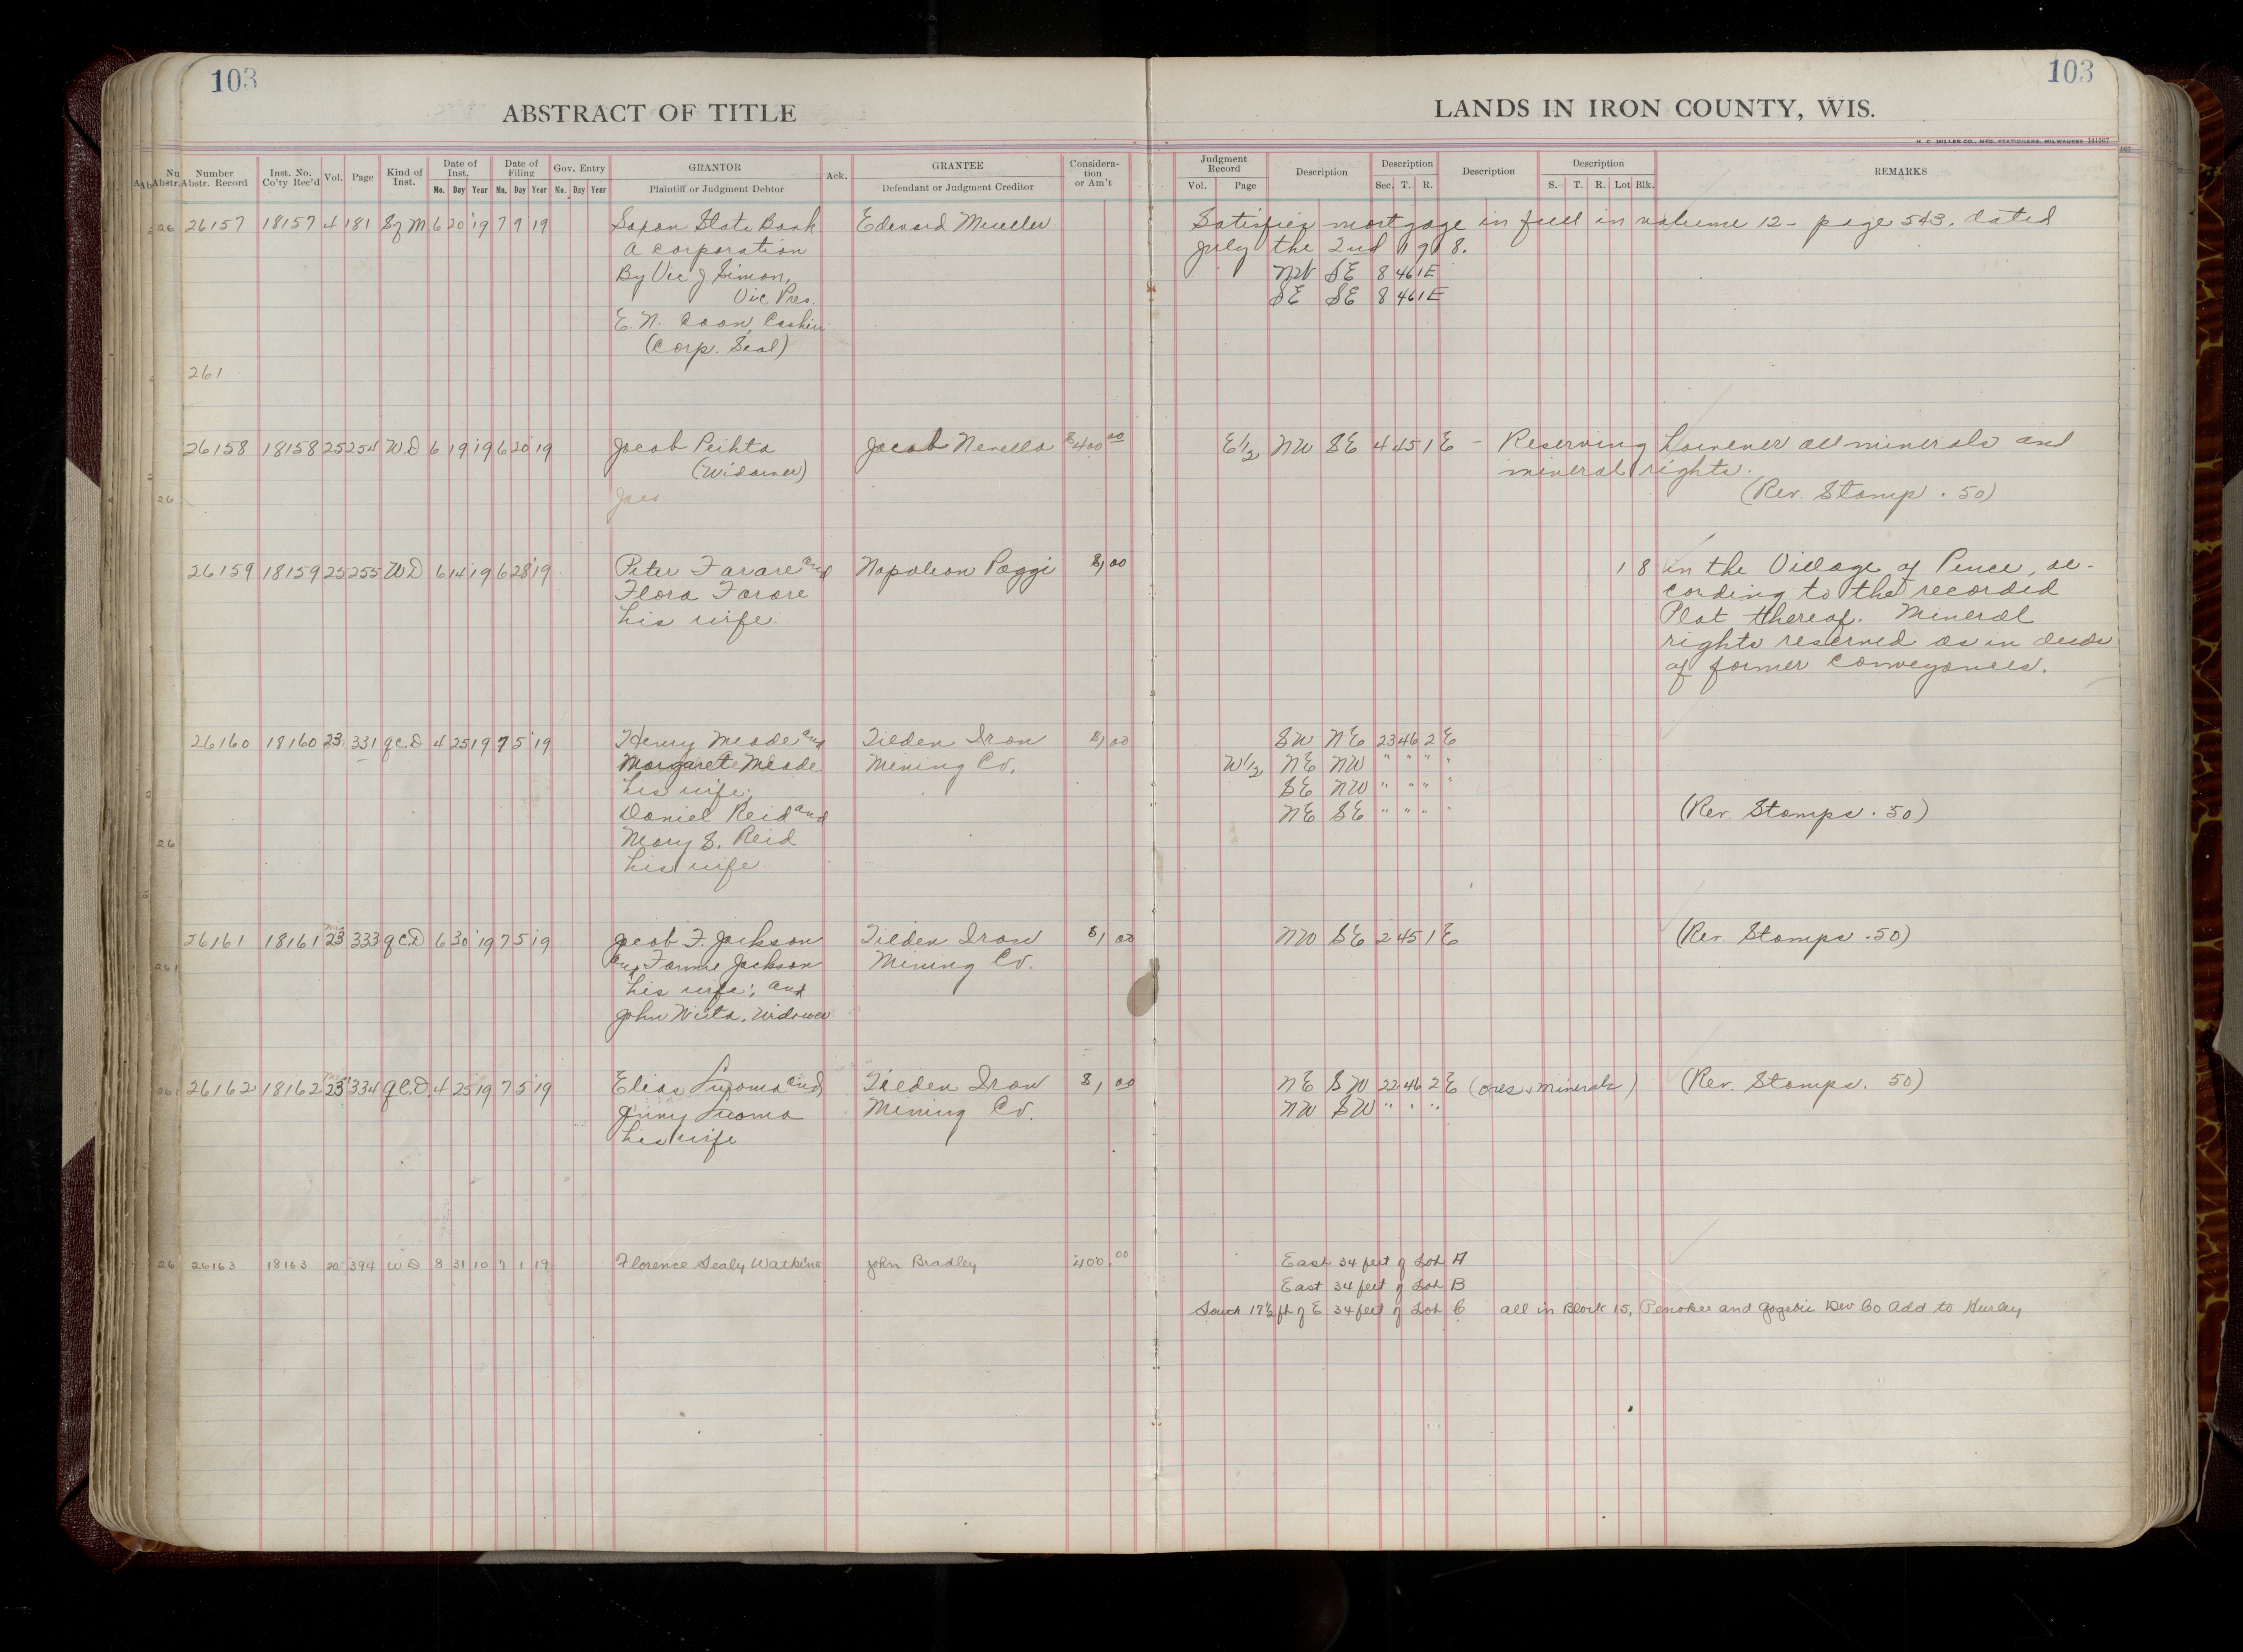 103
103
ABSTRACT OF TITLE
LANDS IN IRON COUNTY, WIS.
H. C. MILLER CO., MFG. STATIONERS, MILWAUKEE 141167
Number Abstr. Record
Inst. No. Co'ty Rec'd
Vol.
Page
Kind of Inst.
Date of Inst.
Mo. Day Year
Date of Filing
Mo. Day Year
Gov. Entry
Mo. Day Year
GRANTOR
Plaintiff or Judgment Debtor
Ack.
GRANTEE
Defendant or Judgment Creditor
Considera-
tion
or Am't
Judgment Record
Vol. Page
Description
Description
Sec. T. R.
Description
Description
S. T. R. Lot Blk.
REMARKS
26157 18157 4 181 S of M 6 20 '19 7 9 19 Saxon State Bank Edward Mueller Satisfies mortgage in full in volume 12 - page 543. dated
a corporation July the 2nd 1918.
By Vic J Simon, NW SE 8 46 1E
Vic Pres. SE SE 8 46 1E
E. N. Coon, Cashier
(Corp. Seal)
261
26158 18158 25 254 W.D 6 19 '19 6 20 19 Jacob Peihta Jacob Nevella $400 00 E1/2 NW SE 4 45 1 E - Reserving however all minerals and
(Widower) mineral rights.
Jaco (Rev. Stamp . 50)
26159 18159 25 255 WD 6 14 '19 6 28 '19 Peter Farare and Napoleon Poggi $1 00 1 8 in the Village of Pence, ac-
Flora Farare cording to the recorded
his wife. Plat thereof. Mineral
rights reserved as in deeds
of former conveyances.
26160 18160 23 331 Q.C.D 4 25 19 7 5 '19 Henry Meade and Tilden Iron $1 00 SW NE 23 46 2 E
Margaret Meade Mining Co. W1/2 NE NW " " " "
his wife; SE NW " " " "
Daniel Reid and NE SE " " " " (Rev. Stamps . 50)
Mary S. Reid
his wife.
26161 18161 23 333 Q.C.D 6 30 '19 7 5 '19 Jacob F. Jackson Tilden Iron $1 00 NW SE 2 45 1 E (Rev. Stamps . 50)
and Fannie Jackson Mining Co.
his wife; and
John Wiita, Widower
26162 18162 23 334 Q.C.D. 4 25 19 7 5 '19 Elias Luoma and Tilden Iron $1 00 NE SW 22 46 2 E (ores & minerals) (Rev. Stamps. 50)
Jenny Luoma Mining Co. NW SW " " "
his wife
26163 18163 20 394 WD 8 31 10 7 1 19 Florence Sealy Watkins John Bradley 400.00 East 34 feet of Lot A
East 34 feet of Lot B
South 17½ ft of E 34 feet of Lot C all in Block 15, Penokee and Gogebic Dev Co Add to Hurley